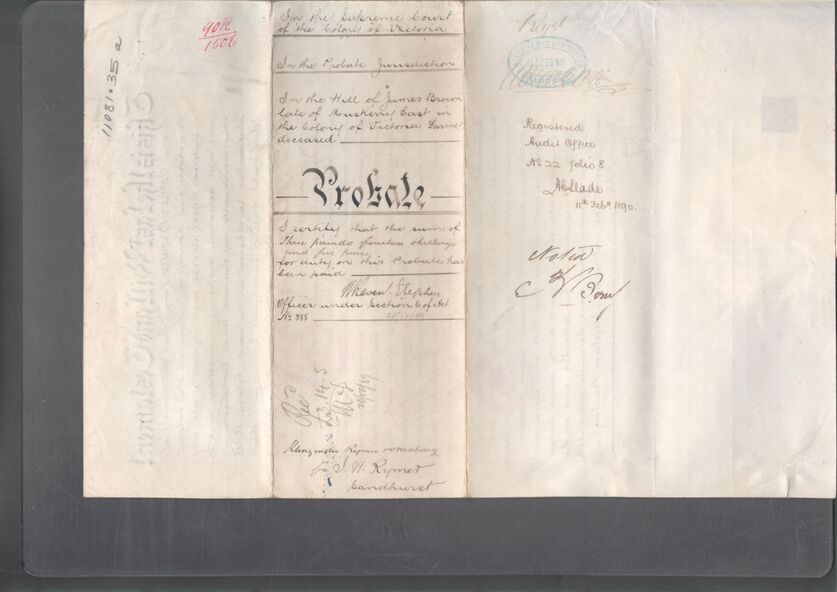 11081.35a
90th
1506
In the Supreme Court
of the Colony of Victoria
In the Probate Jurisdiction
In the Will of James Brown
late of Muskerry East in
the Colony of Victoria Farmer
deceased
Probate
I certify that the sum of
Three pounds fourteen shillings
and five pence
for duty on this Probate has
been paid
Stephen
Officer under Section 6 of Act
No 388
Recd
£3.14.5
Rymer
for J. H. Rymer
Sandhurst
Regd
Registered
Audit Office
No 22 folio 8
11th Feby 1890.
Noted